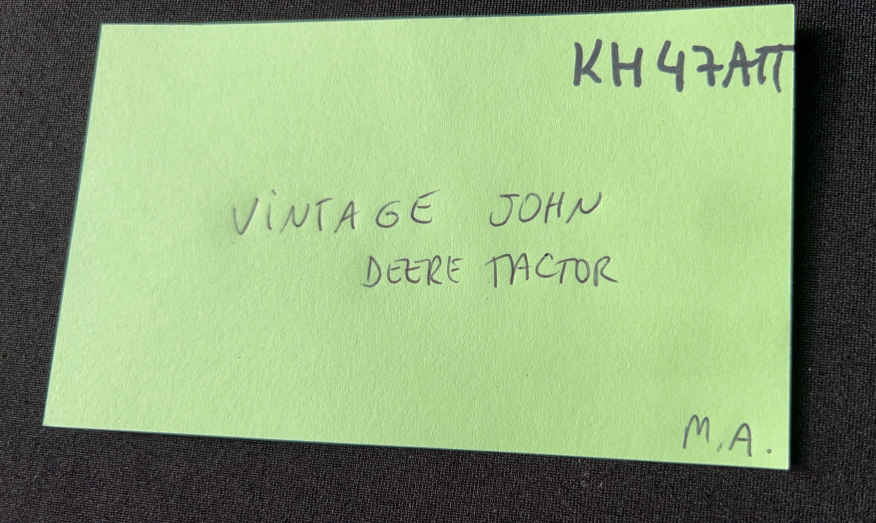 KH47ATT
VINTAGE JOHN
DEERE TACTOR
M.A.